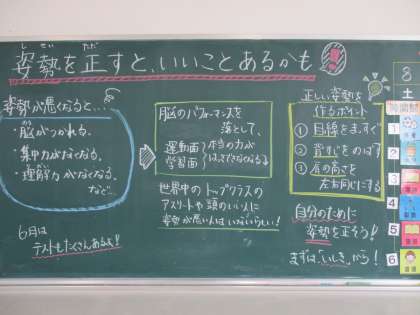 しせい ただ
姿勢を正すと、いいことあるかも!
姿勢が悪くなると…
・脳がつかれる。
・集中力がなくなる。
・理解力がなくなる。
など…
6月は
テストもたくさんあるよ!
脳のパフォーマンスを
落として、
運動面
学習面
本当の力が
はっきできなくなる
世界中のトップクラスの
アスリートや頭のいい人に
姿勢が悪い人はいないらしい!
正しい姿勢を
作るポイント
①目線をまっすぐ
②背すじをのばす
③肩の高さを
左右同じにする
自分のために
姿勢を正そう!
まずは、「いしき」から!
8
土
1
2
3
4
5
6